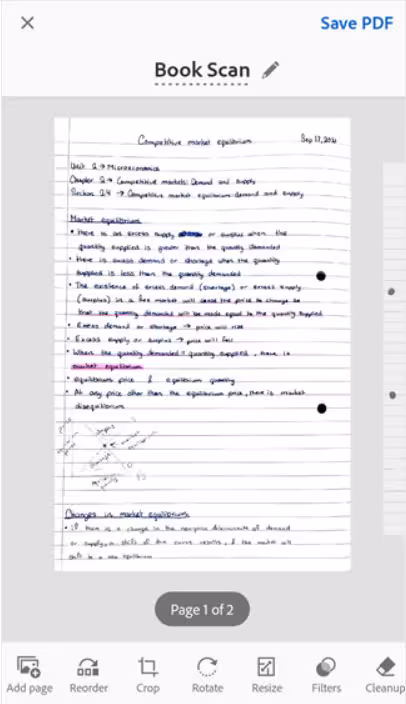 Save PDF
Book Scan
Competitive market equilibrium Sep 17, 2021
Unit 2 → Microeconomics
Chapter 2 → Competitive markets: Demand and supply
Section 2.4 → Competitive market equilibrium demand and supply
Market equilibrium
• There is an excess supply or surplus when the
quantity supplied is greater than the quantity demanded
• There is excess demand or shortage when the quantity
supplied is less than the quantity demanded
• The existence of excess demand (shortage) or excess supply
(surplus) in a free market will cause the price to change so
that the quantity demanded will be made equal to the quantity supplied
• Excess demand or shortage → price will rise
• Excess supply or surplus → price will fall
• When the quantity demanded = quantity supplied, there is
market equilibrium
• equilibrium price & equilibrium quantity
• At any price other than the equilibrium price, there is market
disequilibrium
Changes in market equilibrium
• If there is a change in the non-price determinants of demand
or supply, a shift of the curve results, & the market will
shift to a new equilibrium
Page 1 of 2
Add page
Reorder
Crop
Rotate
Resize
Filters
Cleanup